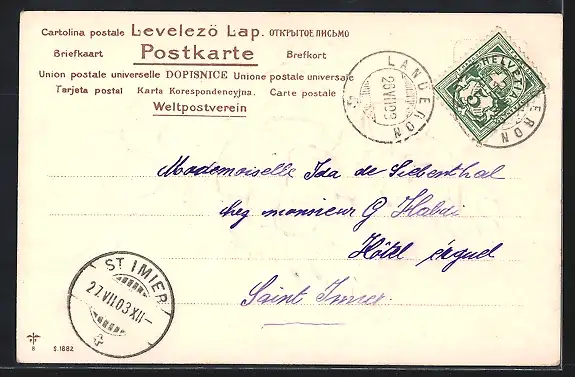 Cartolina postale Levelező Lap. ОТКРЫТОЕ ПИСЬМО
Briefkaart Postkarte Brefkort
Union postale universelle DOPISNICE Unione postale universale
Tarjeta postal Karta Korespondencyjna. Carte postale
Weltpostverein
LANDERON
26 VII 03
HELVETIA
5
ERON
Mademoiselle Ida de Siebenthal
chez monsieur G
Hôtel érguel
Saint Imier
ST IMIER
27.VII.03 XII-
8 S.1882